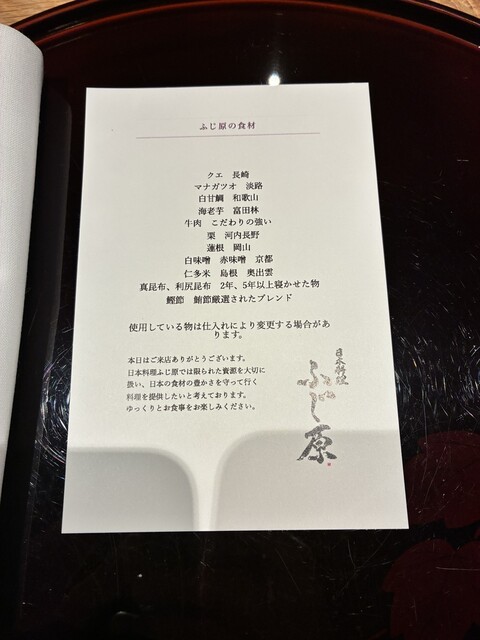 ふじ原の食材
クエ　長崎
マナガツオ　淡路
白甘鯛　和歌山
海老芋　富田林
牛肉　こだわりの強い
栗　河内長野
蓮根　岡山
白味噌　赤味噌　京都
仁多米　島根　奥出雲
真昆布、利尻昆布　2年、5年以上寝かせた物
鰹節　鮪節厳選されたブレンド
使用している物は仕入れにより変更する場合があ
ります。
本日はご来店ありがとうございます。
日本料理ふじ原では限られた資源を大切に
扱い、日本の食材の豊かさを守って行く
料理を提供したいと考えております。
ゆっくりとお食事をお楽しみください。
日本料理
ふじ原